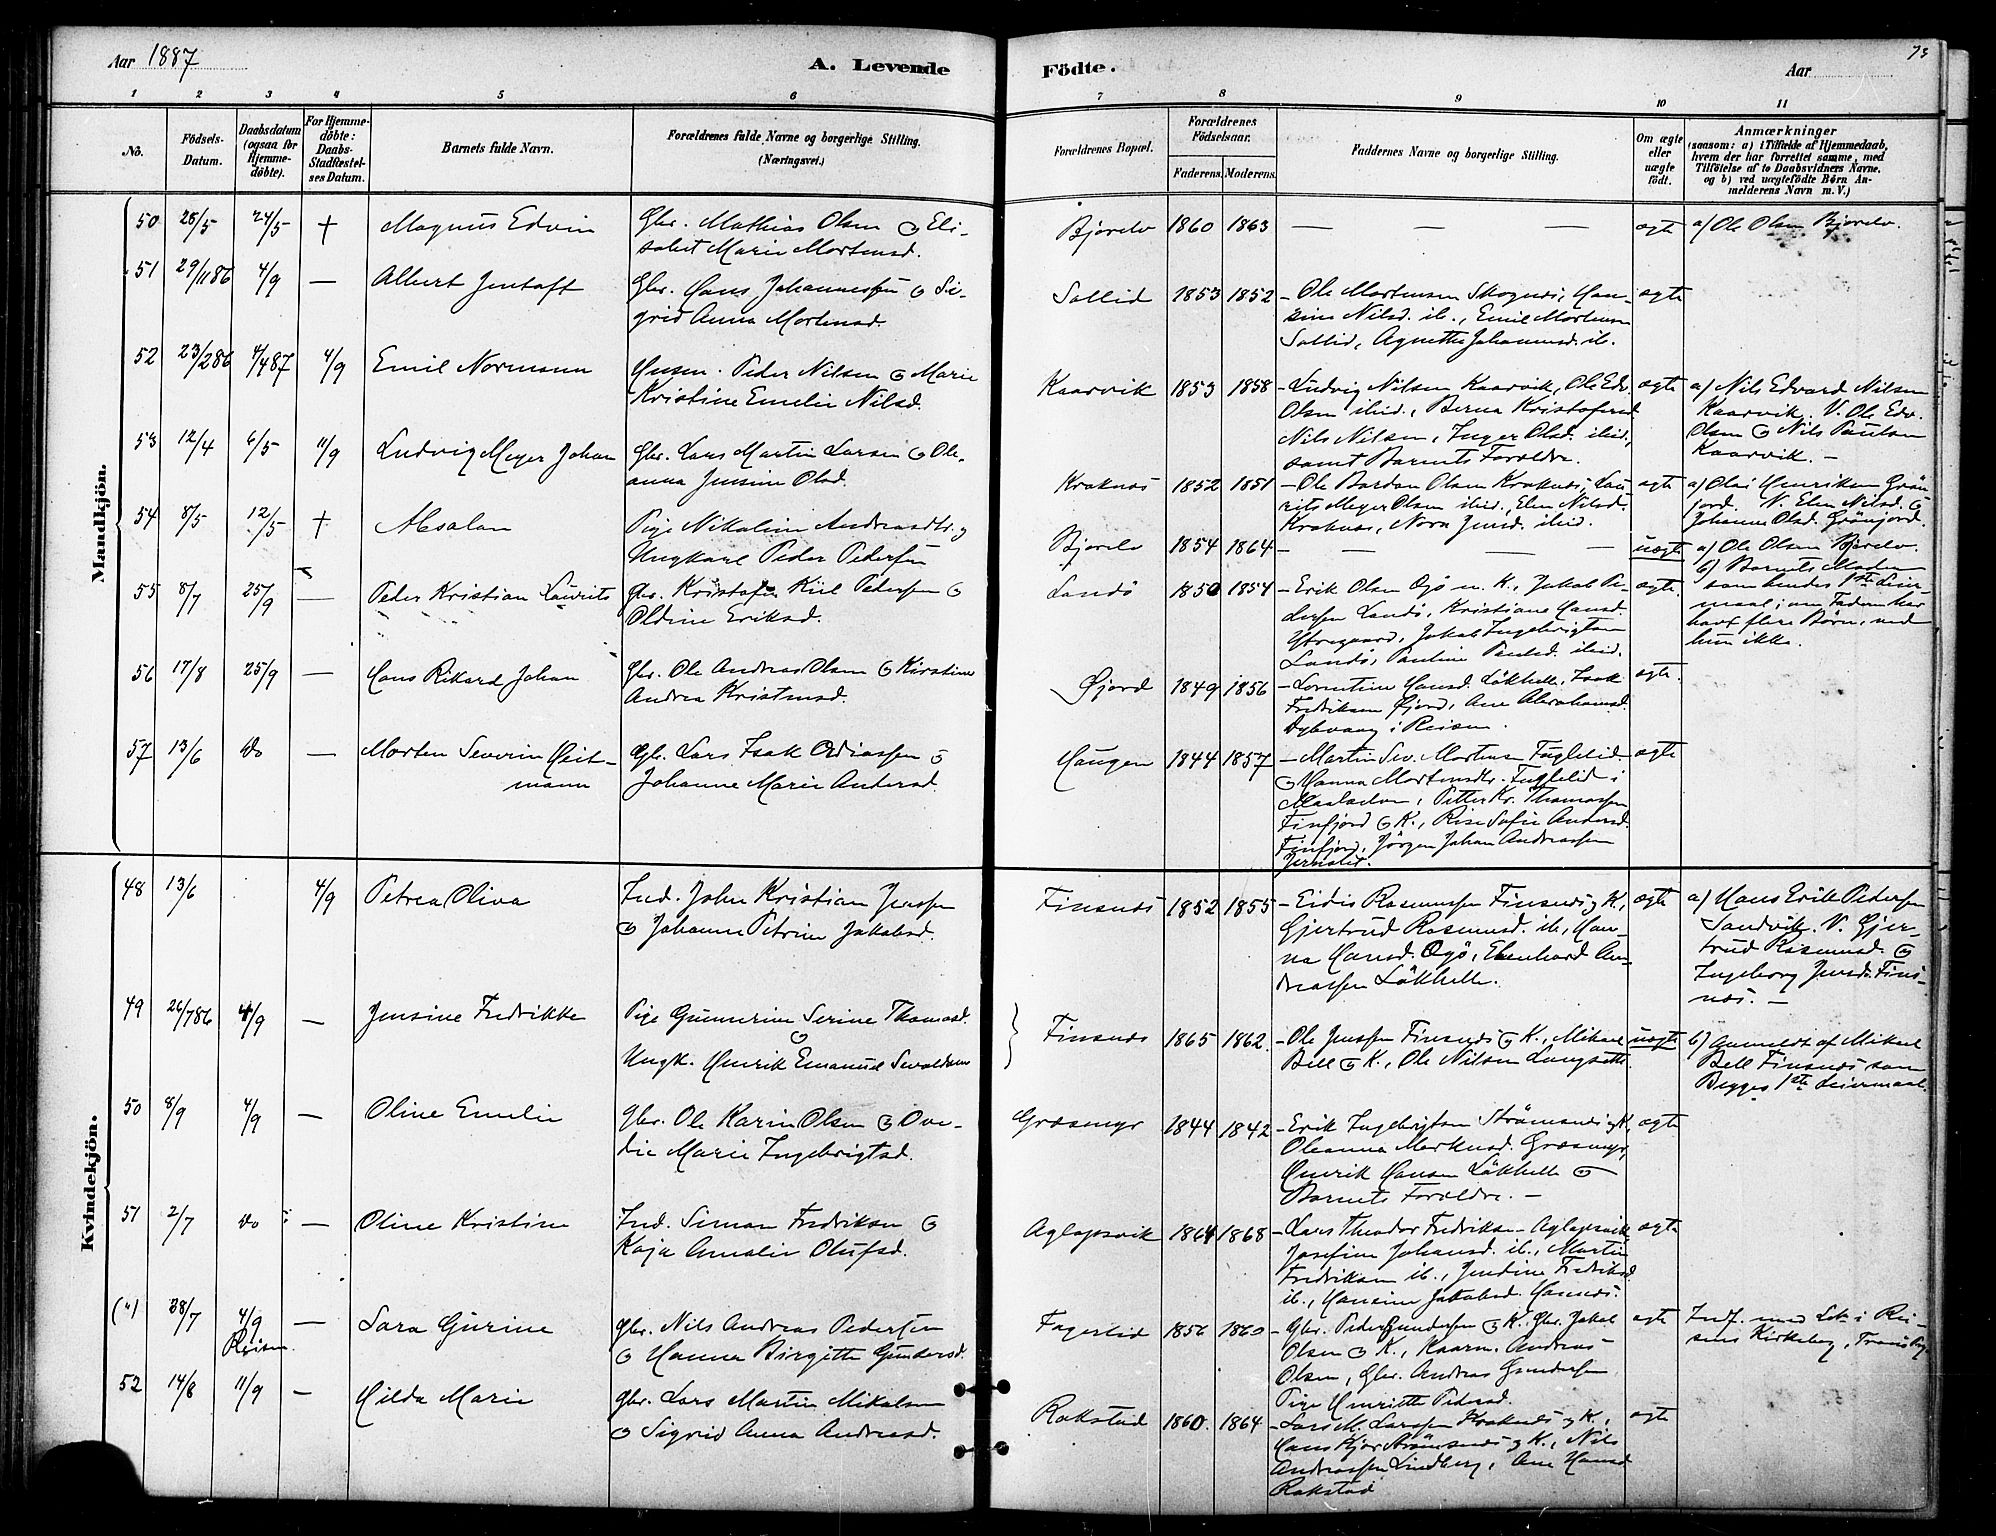 Aar 1887
A. Levende
Födte.
Aar
73
1 2 3 4 5 6 7 8 9 10 11
No.
Födsels-
Datum.
Daabsdatum
(ogsaa for
Hjemme-
döbte).
For Hjemme-
döbte:
Daabs-
Stadfæstel-
ses Datum.
Barnets fulde Navn.
Forældrenes fulde Navne og borgerlige Stilling.
(Næringsvei.)
Forældrenes Bopæl.
Forældrenes
Födselsaar.
Faderens. Moderens.
Faddernes Navne og borgerlige Stilling.
Om ægte
eller
uægte
født.
Anmærkninger
(saasom: a) i Tilfælde af Hjemmedaab,
hvem der har forrettet samme, med
Tilföielse af to Daabsvidners Navne,
og b) ved uægtefödte Börn An-
melderens Navn m. V.)
Mandkjön.
50 24/5 + Magnus Edvin Gbr. Mathias Olsen & Eli-
sabet Marie Mortensd.
Bjorelv 1860 1863 — — — ægte a) Ole Olsen Bjorelv.
51 29/11 86 4/9 — Albert Jentoft Gbr. Hans Johannessen & Si-
grid Anna Mortensd.
Sollid 1853 1852 — Ole Mortensen Skognæs, Han-
sine Nilsd. ib., Emil Mortensen
Sollid, Agnethe Johannesd. ib.
ægte
52 23/2 86 4/4 87 4/9 Emil Normann Husm. Peder Nilsen & Marie
Kristine Emelie Nilsd.
Kaarvik 1853 1858 — Ludvig Nilsen Kaarvik, Ole Edv.
Olsen ibid., Berna Kristofersd.
Nils Nilsen, Inger Olsd. ibid.,
samt Barnets Forældre.
ægte a) Nils Edvard Nilsen
Kaarvik. V. Ole Edv.
Olsen & Nils Paulsen
Kaarvik. —
53 12/4 6/5 11/9 Ludvig Meyer Johan Gbr. Lars Martin Larsen & Ole-
anna Jensine Olsd.
Kraknæs 1852 1851 — Ole Bardon Olsen Kraknæs, Lau-
rits Meyer Olsen ibid., Elen Nilsd.
Kraknæs, Nora Jensd. ibid.
ægte a) Olai Henriksen Grön-
jord. V. Elen Nilsd. &
Johanne Olsd. Grönjord.
54 8/5 12/5 + Absalon Pige Nikoline Andreasdtr. og
Ungkarl Peder Pedersen
Bjorelv 1854 1864 — — — — uægte a) Ole Olsen Bjorelv.
b) Barnets Moder
som hendes 1ste Leier-
maal; om Faderen har
havt flere Børn, ved
hun ikke.
55 8/7 25/9 — Peder Kristian Laurits Gbr. Kristofer Kiil Pedersen &
Oldine Eriksd.
Landö 1850 1854 — Erik Olsen Ogö m. K., Jakob Pe-
dersen Landö, Kristiane Hansd.
Yttregaard, Jakob Ingebrigtsen
Landö, Pauline Paulsd. ibid.
ægte
56 17/8 25/9 — Hans Rikard Johan Gbr. Ole Andreas Olsen & Kirstine
Andrea Kristensd.
Øjord 1849 1856 — Lorentine Hansd. Läkhelle, Isak
Fredriksen Øjord, Ane Abrahamsd.
Dybvaag i Reisen.
ægte
57 13/6 do — Morten Severin Heit-
mann
Gbr. Lars Isak Ediassen &
Johanne Marie Andersd.
Haugen 1844 1857 — Martin Sev. Mortensen Fuglelid
& Hanna Mortensdtr. Fuglelid i
Maalselven, Petter Kr. Thomassen
Finfjord & K., Rise Sofie Andersd.
Finfjord, Jörgen Johan Andreassen
ægte
Kvindekjön.
48 13/6 4/9 Petrea Oliva Ind. John Kristian Jenssen
& Johanne Petrine Jakobsd.
Finsnæs 1852 1855 — Eidis Rasmussen Finsnæs & K.,
Gjertrud Rasmusd. ib., Han-
na Hansd. Ogö, Ebenhard An-
dreassen Läkhelle.
ægte a) Hans Erik Pedersen
Sandvik. V. Gjer-
trud Rasmusd. &
Ingeborg Jensd. Fins-
næs. —
49 26/7 86 4/9 — Jensine Fredrikke Pige Gunnerine Serine Thomasd.
&
Ungk. Henrik Emanuel Sivaldsen
Finsnæs 1865 1862 — Ole Jenssen Finsnæs & K., Mikael
Bell & K., Ole Nilsen Langsæth.
uægte b) anmeldt af Mikael
Bell Finsnæs som
Begges 1ste Leiermaal.
50 8/9 4/9 — Oline Emelie Gbr. Ole Karin Olsen & Ove-
die Marie Ingebrigtsd.
Græsmyr 1844 1842 — Erik Ingebrigtsen Strömsnæs & K.,
Oleanna Markusd. Græsmyr,
Henrik Hansen Läkhelle &
Barnets Forældre. —
ægte
51 2/7 do — Oline Kristine Ind. Simon Fredriksen &
Kaja Amalie Olufsd.
Aglapsvik 1864 1868 — Lars Theodor Fredriksen Aglapsvik,
Josefine Johansd. ib., Martin
Fredriksen ib., Jendine Fredriksd.
ib., Hansine Jakobsd. Hannæs.
ægte
(") 28/7 4/9
Reisen — Sara Gurine Gbr. Nils Andreas Pedersen
& Hanna Birgitte Gundersd.
Fagerlid 1856 1860 — Gbr. Peder Gundersen & K., Gbr. Jakob
Olsen & K., Kaarm. Andreas
Olsen, Gbr. Andreas Gundersen
Pige Henriette Pedersd.
ægte Indf. med Lit. i Rei-
sens Kirkebog, Tromsö
52 14/8 11/9 — Hilda Marie Gbr. Lars Martin Mikalsen
& Sigrid Anna Andreasd.
Rakstad 1860. 1864 — Lars M. Larssen Kraknæs & K.,
Hans Kjær Strömsnæs & K., Nils
Andreassen Lindberg, Ane Hansd.
Rakstad
ægte